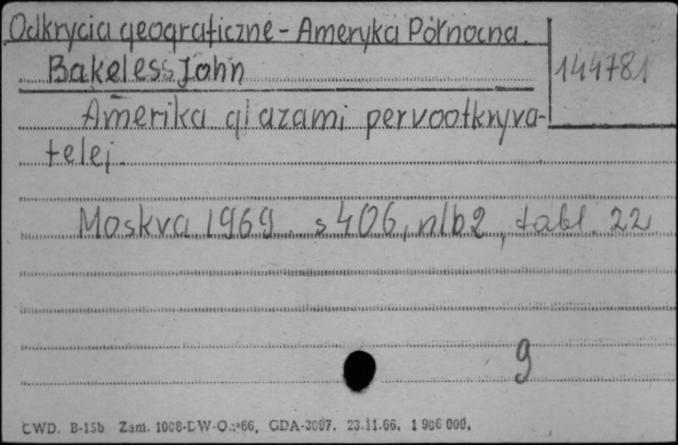 Odkrycia geograficzne - Ameryka Północna.
Bakeless John
144781
Amerika glazami pervootkryva-
telej.
Moskva 1969. s 406, nlb2, tabl. 22
9
CWD. B-15b Zam. 1008-DW-O. 66, GDA-3097. 23.11.66. 1 906 000.